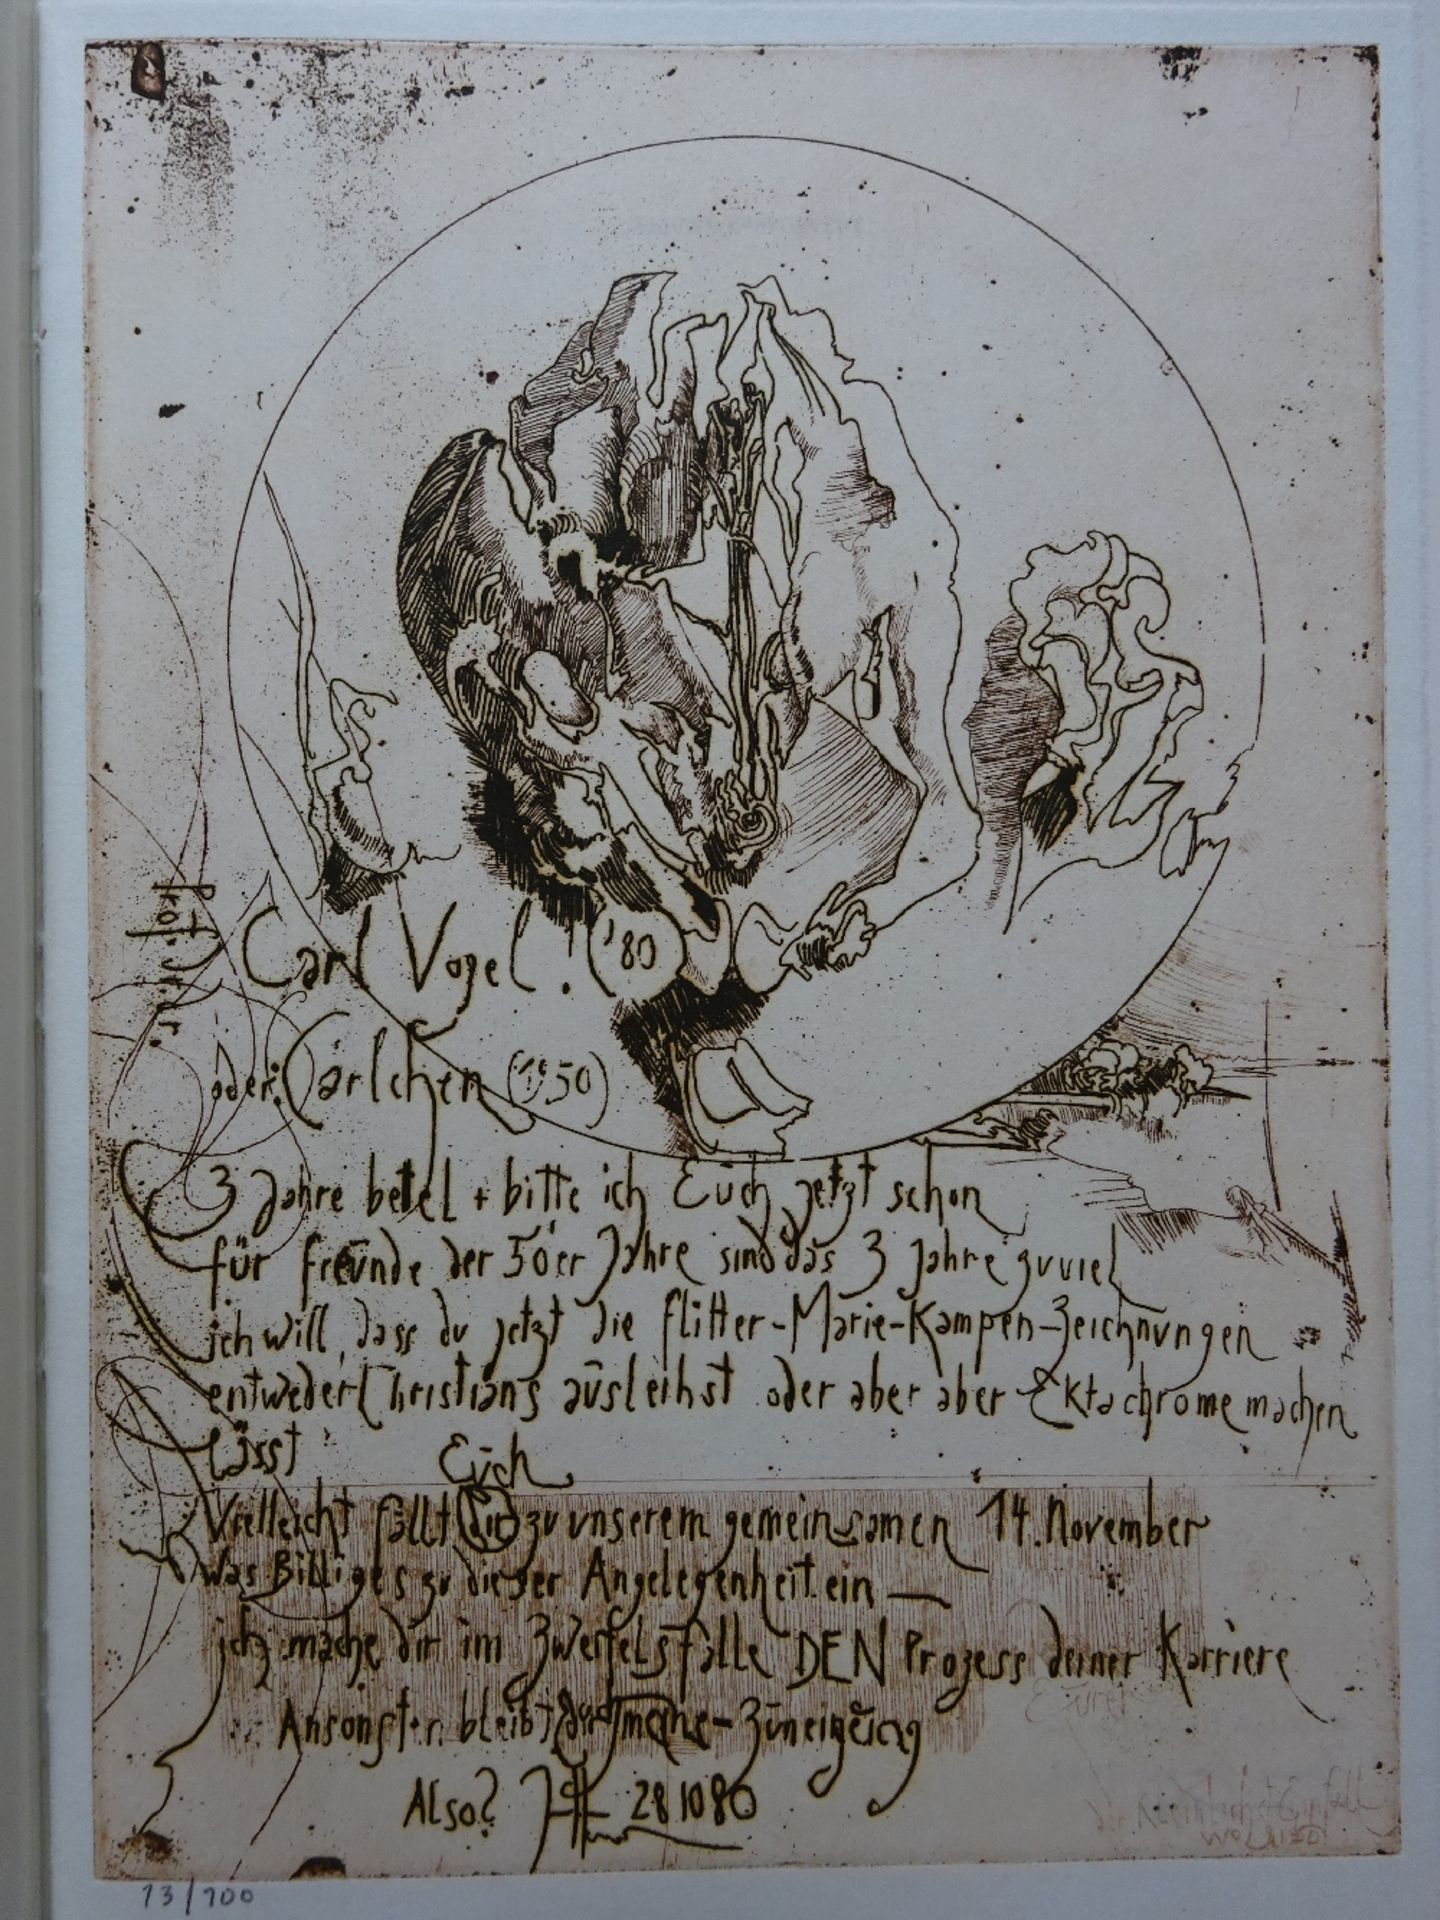 Prof. Dr.
Carl Vogel! ('80
oder: Carlchen (1950)
3 Jahre bettel + bitte ich Euch jetzt schon
für freunde der 50'er Jahre sind das 3 Jahre zuviel
ich will, dass du jetzt die flitter-Marie-Kampen-Zeichnungen
entweder Christians ausleihst oder aber aber Ektachrome machen
lässt
Euch
Vielleicht fällt dir zu unserem gemeinsamen 14. November
Was Billiges zu dieser Angelegenheit ein —
ich mache dir im Zweifelsfalle DEN Prozess deiner Karriere
Eurer
Ansonsten bleibt meine Zuneigung
Also? 28 10 80
13/100